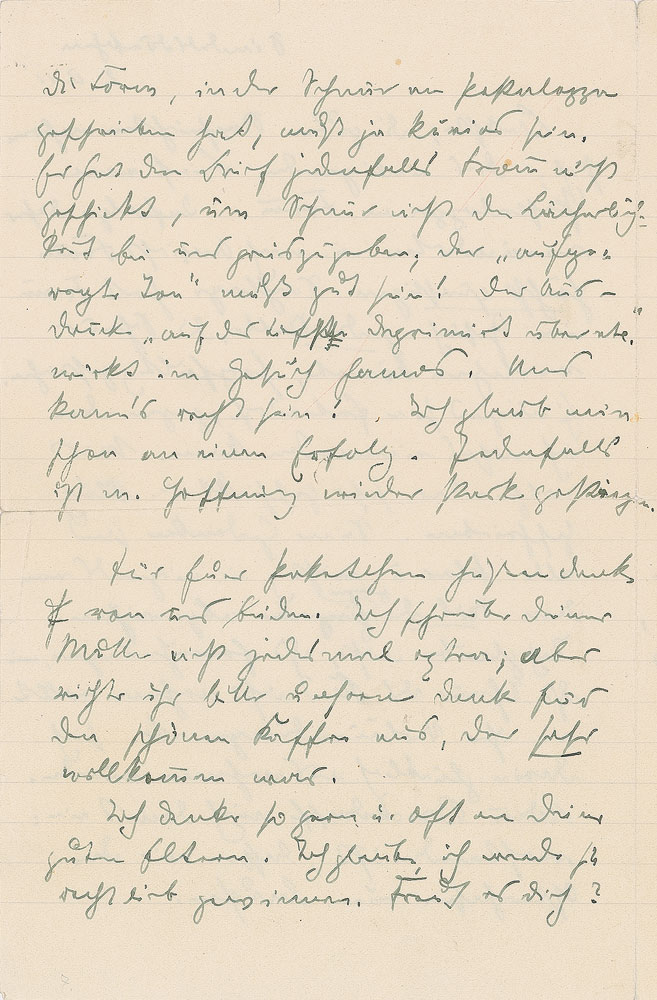 die Form, in der Schnur an
geschrieben hat, muß ja kurios sein.
Er hat den Brief jedenfalls nicht
geschickt, um Schnur nicht der Lächerlich-
keit bei uns preiszugeben; der „aufge-
regte Ton“ muß gut sein! Der Aus-
druck „auf das deprimirt über etc.“
wirkt im Gesuch famos. Uns
kann's recht sein! Ich glaub nun
schon an einen Erfolg. Jedenfalls
ist m. Hoffnung wieder stark gestiegen.
Für Euer Paketchen schönsten Dank
von uns beiden. Ich schreibe Deiner
Mutter nicht jedesmal extra; aber
richte ihr bitte unsern Dank für
den schönen Kaffee aus, der sehr
willkommen war.
Ich denke so gern u. oft an Deine
guten Eltern. Ich glaube, ich werde sie
recht lieb gewinnen. Freut es Dich?